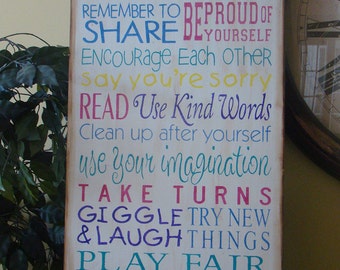 REMEMBER TO SHARE
BE PROUD OF YOURSELF
ENCOURAGE EACH OTHER
say you're sorry
READ Use Kind Words
Clean up after yourself
use your imagination
TAKE TURNS
GIGGLE & LAUGH
TRY NEW THINGS
PLAY FAIR